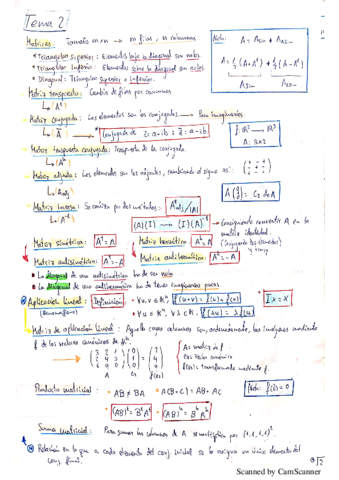 Tema 2
Matrices: Tamaño m×n → m filas, n columnas
• Triangular superior: Elementos bajo la diagonal son nulos.
• Triangular inferior: Elementos sobre la diagonal son nulos.
• Diagonal: Triangular superior e inferior.
Nota: A = A sim + A asim
A = 1/2 (A + Aᵗ) + 1/2 (A - Aᵗ)
Matriz traspuesta: Cambio de filas por columnas
↳ (Aᵗ)
Matriz conjugada: Los elementos son los conjugados → Para imaginarios
↳ (Ā) • Conjugado de z: a+ib : z̄ = a-ib
f: ℝ² → ℝ³
A: 3×2
Matriz traspuesta conjugada: Traspuesta de la conjugada.
Matriz adjunta: Los elementos son los adjuntos, cambiando el signo así:
↳ Adj
Matriz inversa: Se consigue por dos métodos:
↳ A⁻¹
(A|I) → (I|A⁻¹)
Consiguiendo convertir A en la matriz identidad.
Matriz simétrica: Aᵗ = A
Matriz hermítica: Aʰ = A
Matriz antisimétrica: Aᵗ = -A
Matriz antihermítica: Aʰ = -A
• La diagonal de una antisimétrica ha de ser nula
• La diagonal de una antihermítica ha de tener imaginarios puros
Aplicación lineal: Definición: • ∀u,v ∈ ℝⁿ, f(u+v) = f(u) + f(v)
• Ix = x
• ∀u ∈ ℝⁿ, ∀λ ∈ ℝ, f(λu) = λf(u)
Matriz de aplicación lineal: Aquella cuyas columnas son, ordenadamente, las imágenes mediante
f de los vectores canónicos de ℝⁿ.
A es matriz de f
Producto matricial: • AB ≠ BA • A(B+C) = AB + AC
Nota: f(0) = 0
• (AB)ᵗ = BᵗAᵗ • (AB)ʰ = BʰAʰ
Suma matricial: Para sumar las columnas de A se multiplica por (1,1,1,1)ᵗ
Relación en la que a cada elemento del conj. inicial se le asigna un único elemento del
conj. final.
Scanned by CamScanner